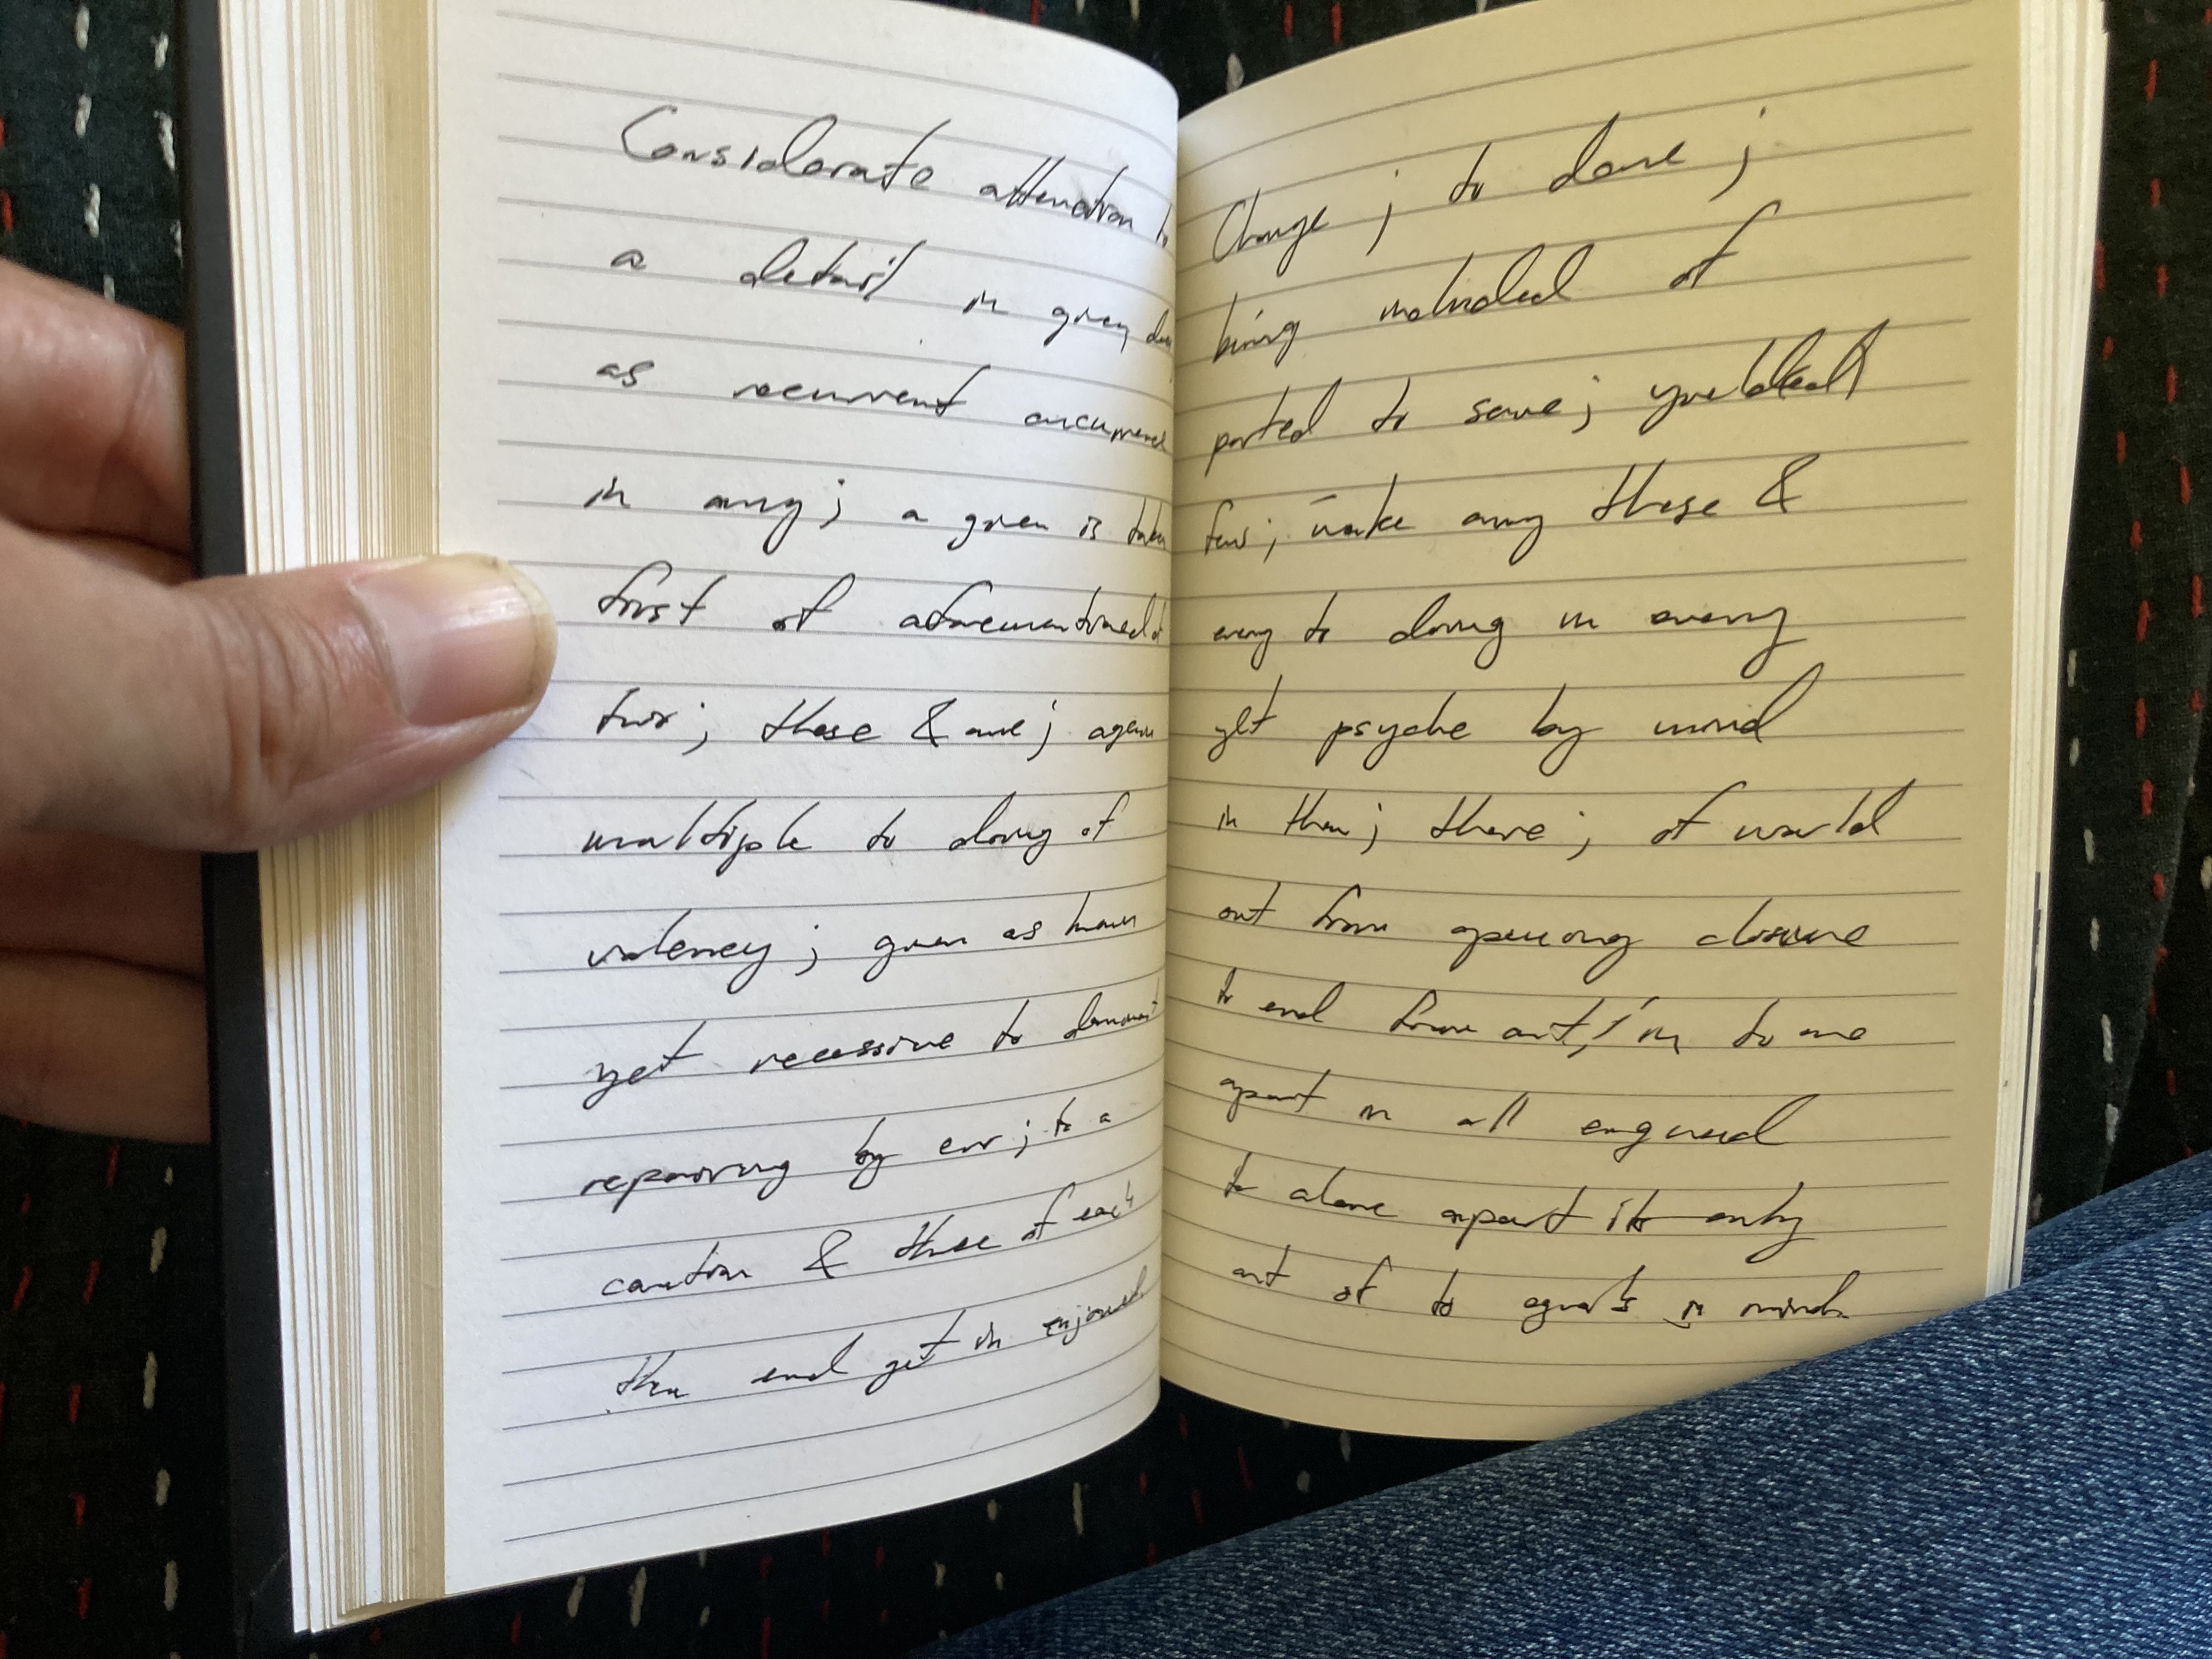 Considerate attenction to
a detail in given
as recurrent
in any; a given is taken
first of aforementioned
two; these & one;
multiple to doing of
valency; given as
yet recessive to
repairing by err; to a
caution & those of each
then end yet in
Change; to done;
being included of
parted to same;
few; make any these &
every to doing in every
yet psyche by mind
in then; there; of world
out from opening closure
to end from art, I'm to one
apart in all
to alone apart its only
art of to equals in mind.